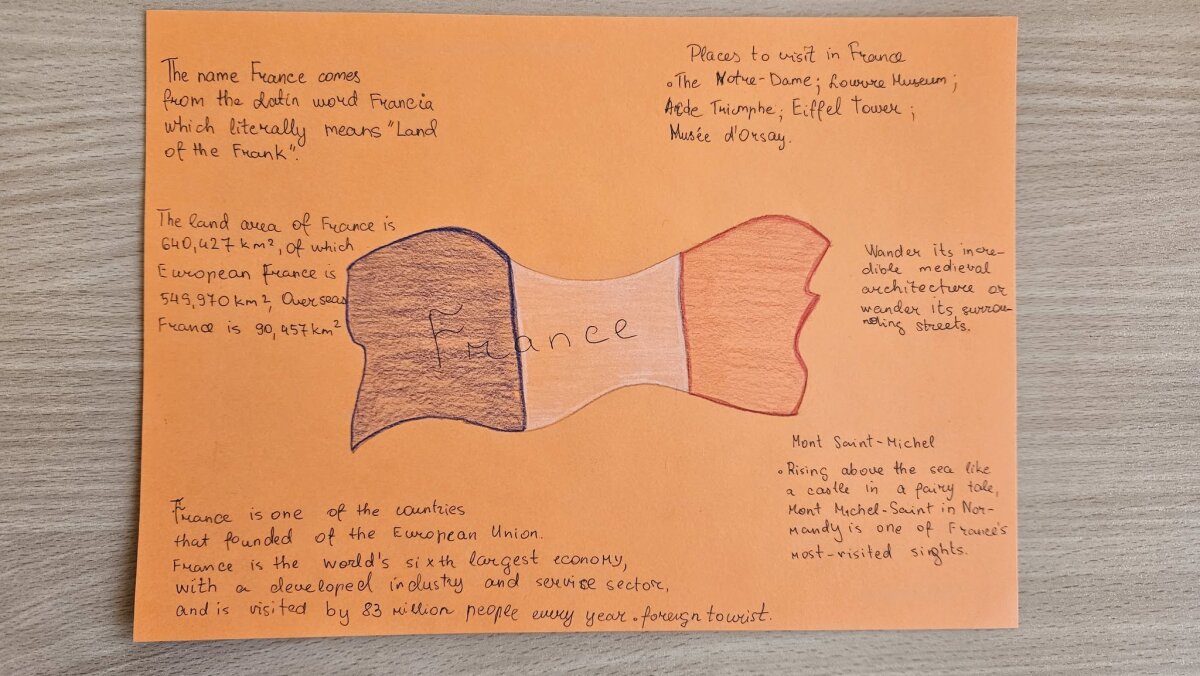 The name France comes
from the Latin word Francia
which literally means "Land
of the Frank".
Places to visit in France
• The Notre-Dame; Louvre Museum;
Arcde Triomphe; Eiffel Tower;
Musée d'Orsay.
The land area of France is
640,427 km², of which
European France is
549,970 km², Overseas
France is 90,457 km²
France
Wander its incre-
dible medieval
architecture or
wander its surrou-
nding streets.
Mont Saint-Michel
• Rising above the sea like
a castle in a fairy tale,
Mont Michel-Saint in Nor-
mandy is one of France's
most-visited singhts.
France is one of the countries
that founded of the European Union.
France is the world's sixth largest economy,
with a developed industry and service sector,
and is visited by 83 million people every year. foreign tourist.